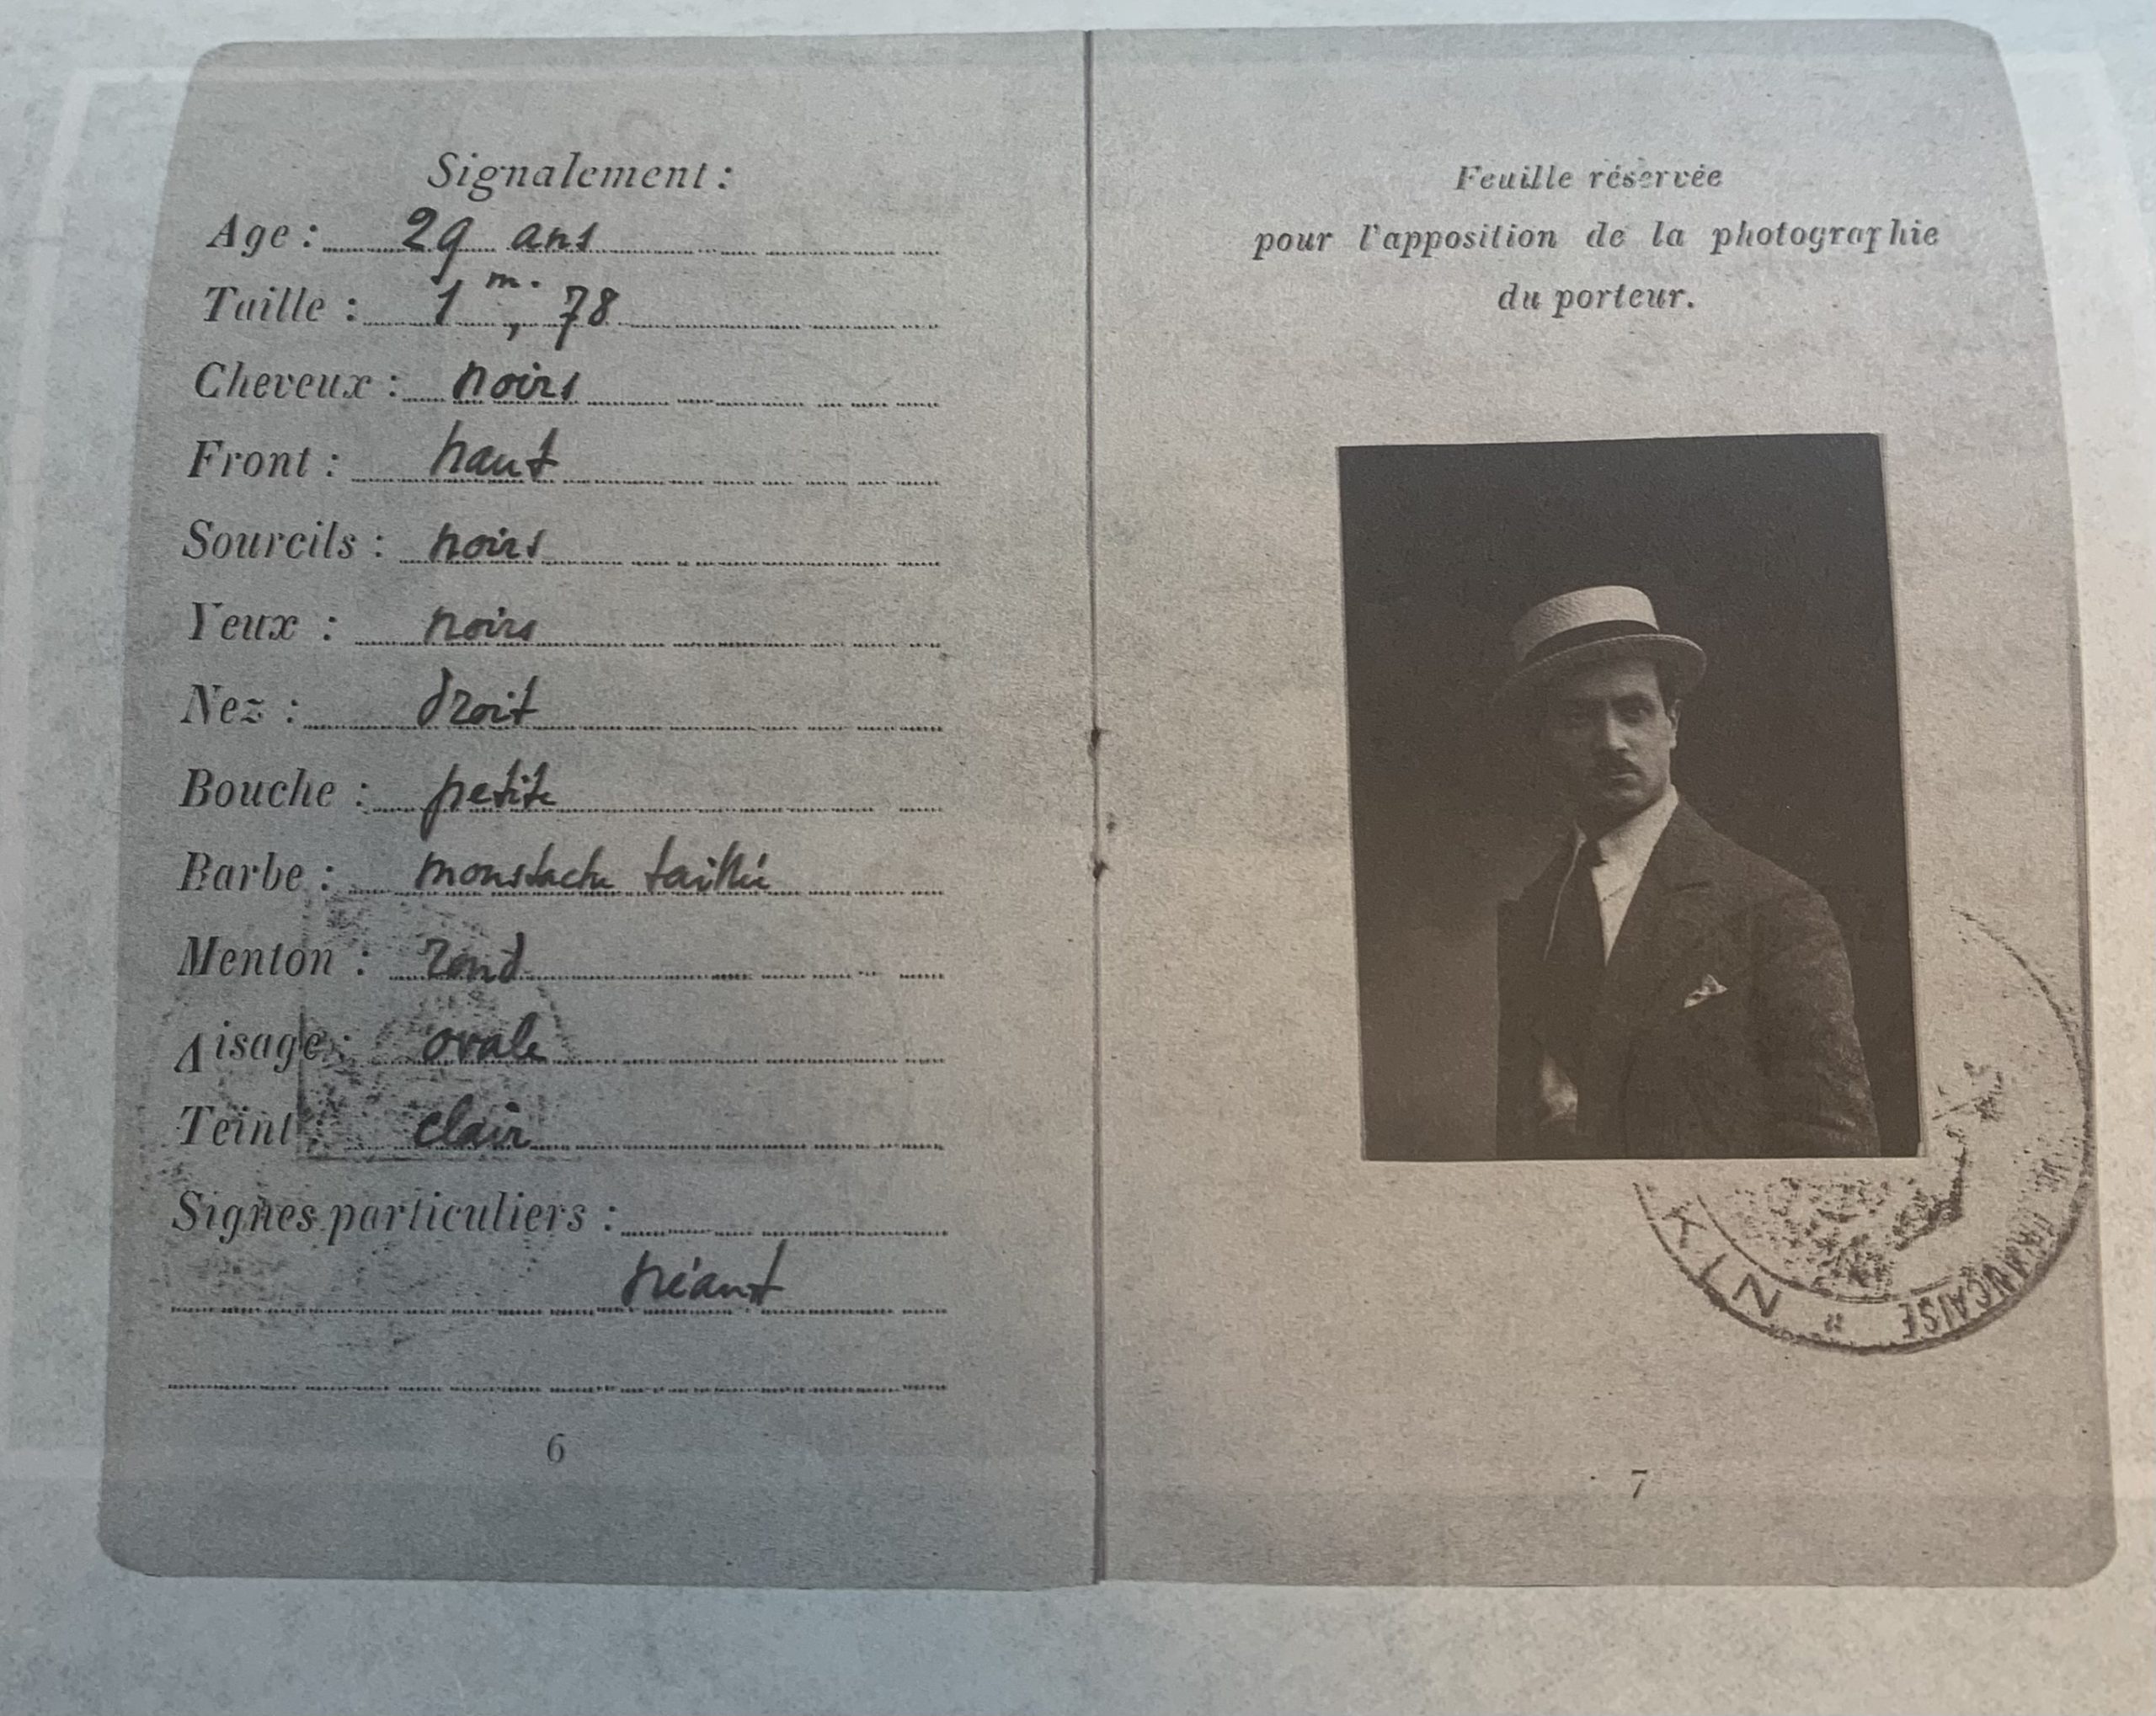 Signalement :
Age : 29 ans
Taille : 1 m. , 78
Cheveux : noirs
Front : haut
Sourcils : noirs
Yeux : noirs
Nez : droit
Bouche : petite
Barbe : moustache taillée
Menton : rond
Visage : ovale
Teint : clair
Signes particuliers :
néant
6
Feuille réservée
pour l'apposition de la photographie
du porteur.
KIN " FRANÇAISE
7